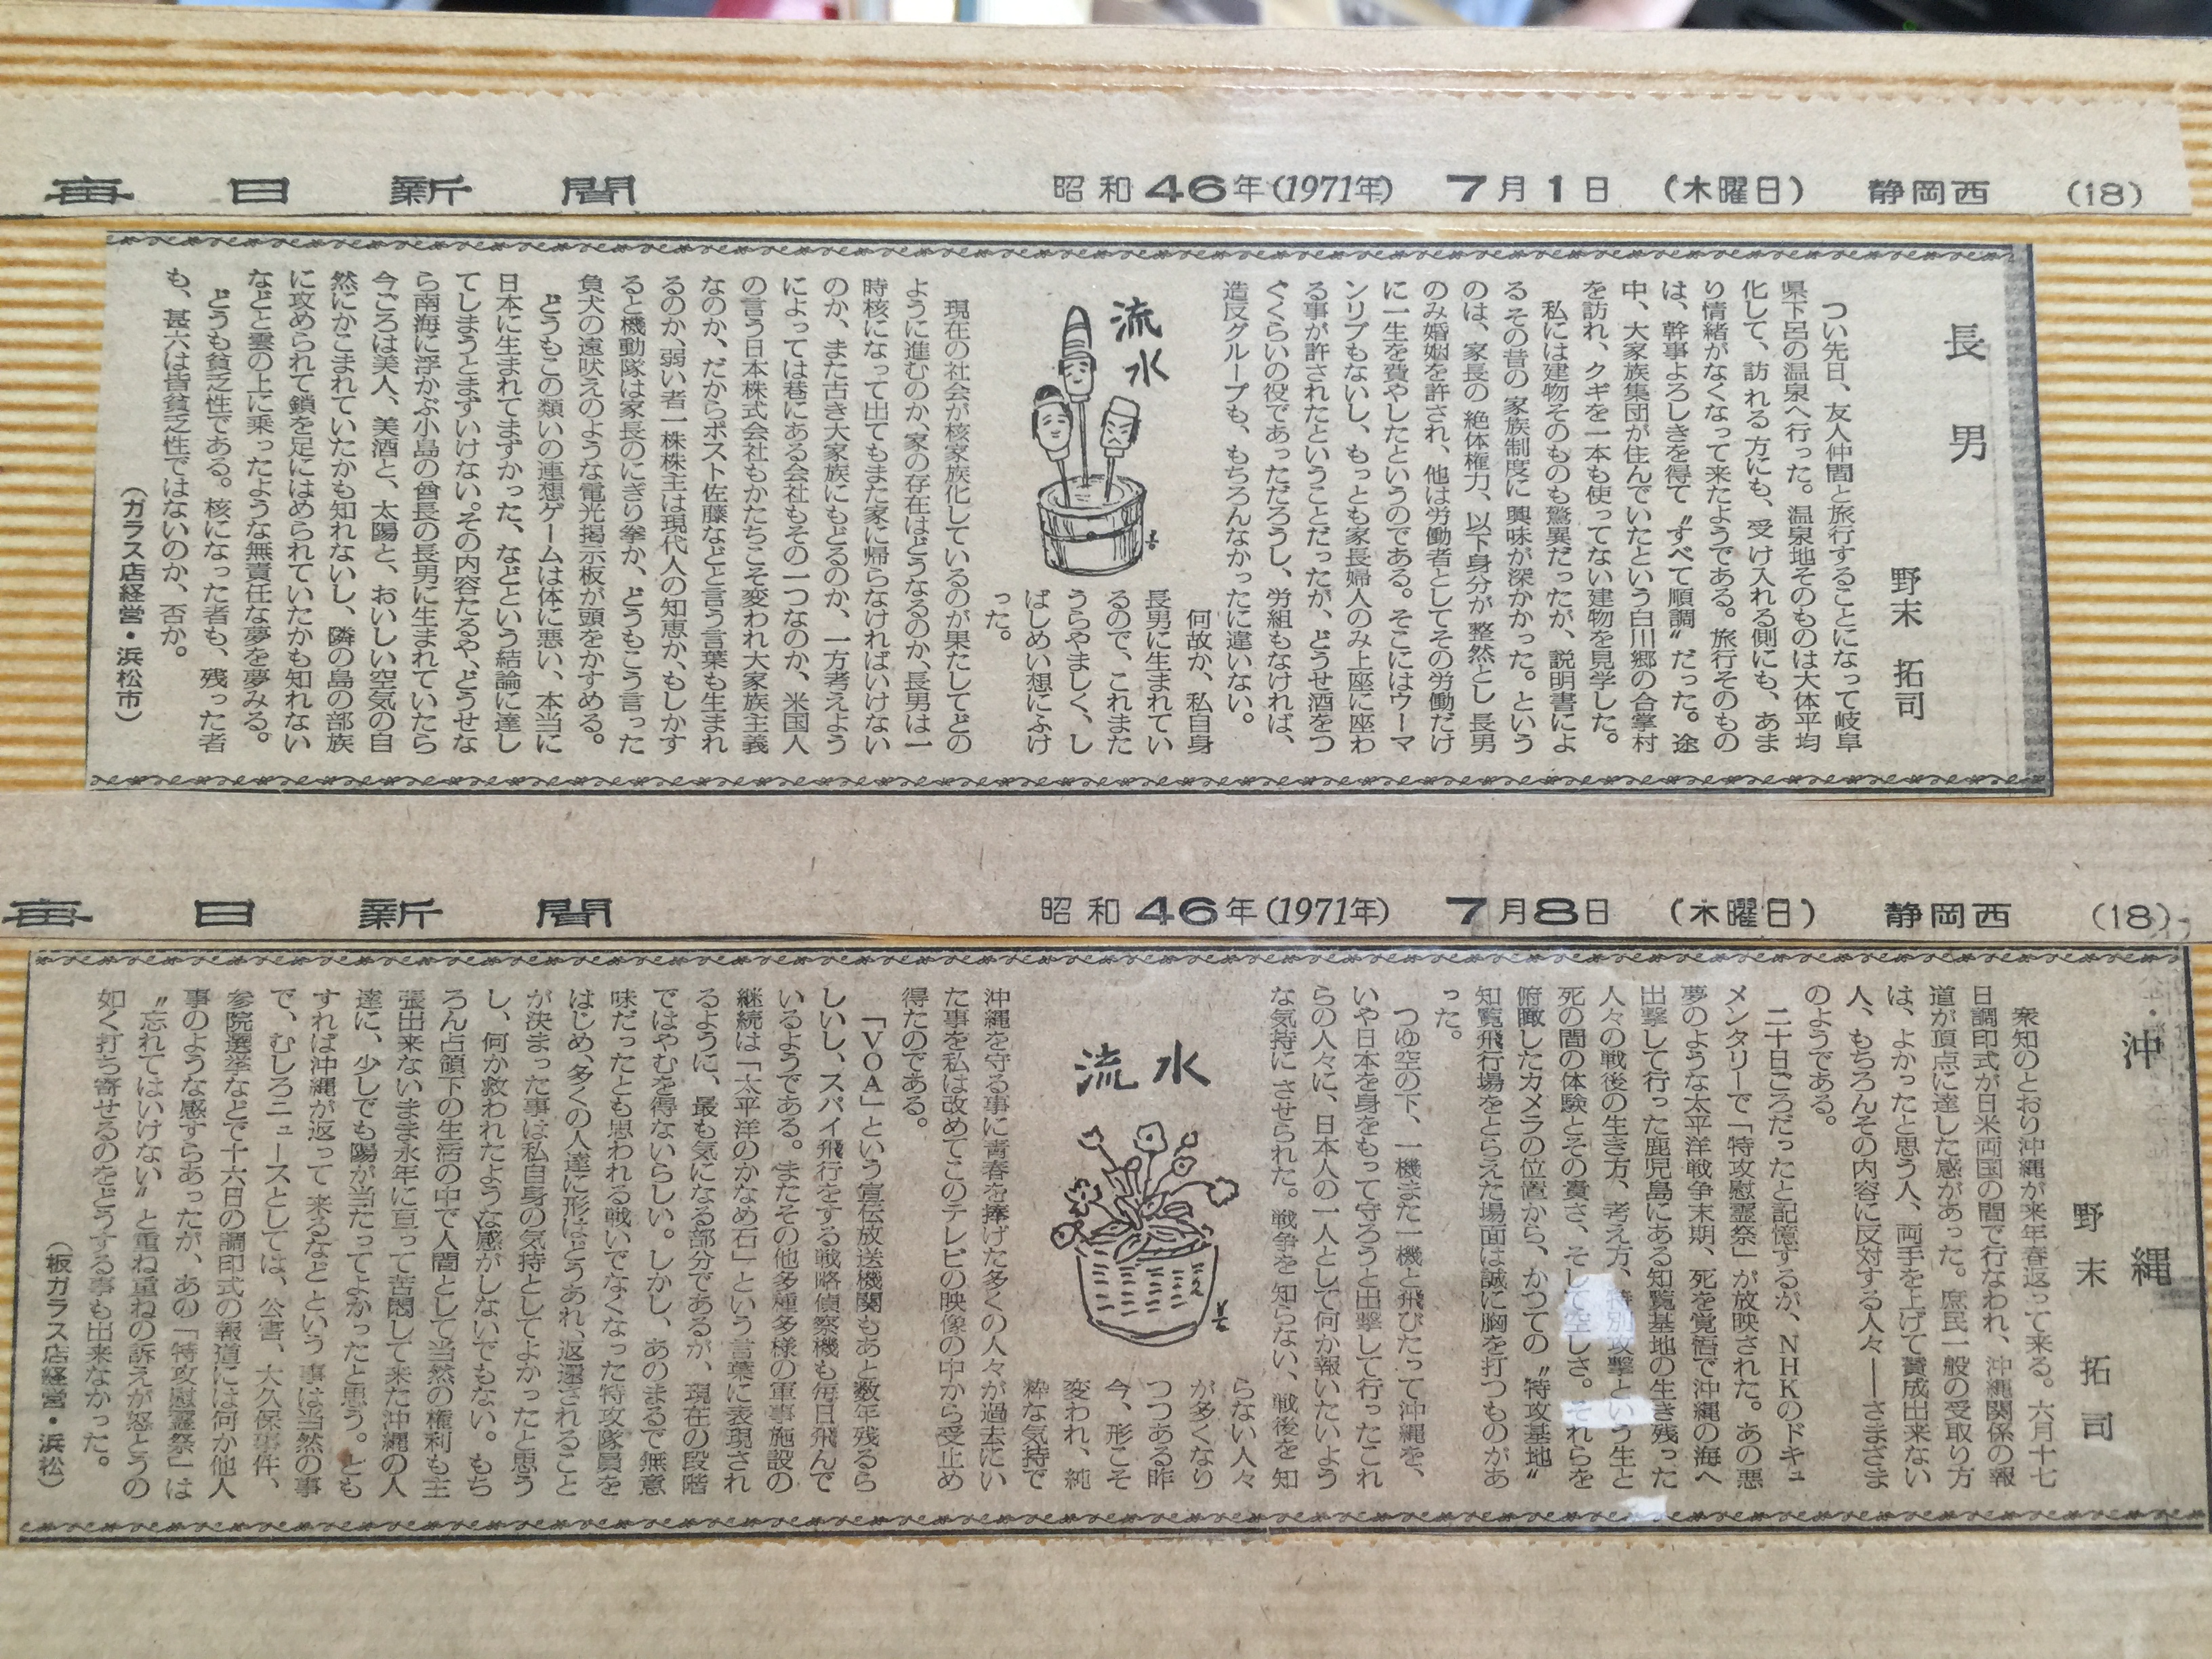 毎日新聞 昭和46年(1971年) 7月1日 (木曜日) 静岡西 (18)
長男
野末 拓司
つい先日、友人仲間と旅行することになって岐阜
県下呂の温泉へ行った。温泉地そのものは大体平均
化して、訪れる方にも、受け入れる側にも、あま
り情緒がなくなって来たようである。旅行そのもの
は、幹事よろしきを得て〝すべて順調〟だった。途
中、大家族集団が住んでいたという白川郷の合掌村
を訪れ、クギを一本も使ってない建物を見学した。
私には建物そのものも驚異だったが、説明書によ
るその昔の家族制度に興味が深かかった。という
のは、家長の絶体権力、以下身分が整然とし長男
のみ婚姻を許され、他は労働者としてその労働だけ
に一生を費やしたというのである。そこにはウーマ
ンリブもないし、もっとも家長婦人のみ上座に座わ
る事が許されたということだったが、どうせ酒をつ
ぐくらいの役であっただろうし、労組もなければ、
造反グループも、もちろんなかったに違いない。
流水
何故か、私自身
長男に生まれてい
るので、これまた
うらやましく、し
ばしめい想にふけ
った。
現在の社会が核家族化しているのが果たしてどの
ように進むのか、家の存在はどうなるのか、長男は一
時核になって出てもまた家に帰らなければいけない
のか、また古き大家族にもどるのか、一方考えよう
によっては巷にある会社もその一つなのか、米国人
の言う日本株式会社もかたちこそ変われ大家族主義
なのか、だからポスト佐藤などと言う言葉も生まれ
るのか、弱い者一株株主は現代人の知恵か、もしかす
ると機動隊は家長のにぎり拳か、どうもこう言った
負犬の遠吠えのような電光掲示板が頭をかすめる。
どうもこの類いの連想ゲームは体に悪い、本当に
日本に生まれてまずかった、などという結論に達し
てしまうとまずいけない。その内容たるや、どうせな
ら南海に浮かぶ小島の酋長の長男に生まれていたら
今ごろは美人、美酒と、太陽と、おいしい空気の自
然にかこまれていたかも知れないし、隣の島の部族
に攻められて鎖を足にはめられていたかも知れない
などと雲の上に乗ったような無責任な夢を夢みる。
どうも貧乏性である。核になった者も、残った者
も、甚六は皆貧乏性ではないのか、否か。
(ガラス店経営・浜松市)
毎日新聞 昭和46年(1971年) 7月8日 (木曜日) 静岡西 (18)
沖縄
野末 拓司
衆知のとおり沖縄が来年春返って来る。六月十七
日調印式が日米両国の間で行なわれ、沖縄関係の報
道が頂点に達した感があった。庶民一般の受取り方
は、よかったと思う人、両手を上げて賛成出来ない
人、もちろんその内容に反対する人々——さまざま
のようである。
二十日ごろだったと記憶するが、NHKのドキュ
メンタリーで「特攻慰霊祭」が放映された。あの悪
夢のような太平洋戦争末期、死を覚悟で沖縄の海へ
出撃して行った鹿児島にある知覧基地の生き残った
人々の戦後の生き方、考え方、特別攻撃という生と
死の間の体験とその貴さ、そして空しさ。それらを
俯瞰したカメラの位置から、かつての〝特攻基地〟
知覧飛行場をとらえた場面は誠に胸を打つものがあ
った。
つゆ空の下、一機また一機と飛びたって沖縄を、
いや日本を身をもって守ろうと出撃して行ったこれ
らの人々に、日本人の一人として何か報いたいよう
な気持にさせられた。戦争を知らない、戦後を知
流水
らない人々
が多くなり
つつある昨
今、形こそ
変われ、純
粋な気持で
沖縄を守る事に青春を捧げた多くの人々が過去にい
た事を私は改めてこのテレビの映像の中から受止め
得たのである。
「VOA」という宣伝放送機関もあと数年残るら
しいし、スパイ飛行をする戦略偵察機も毎日飛んで
いるようである。またその他多種多様の軍事施設の
継続は「太平洋のかなめ石」という言葉に表現され
るように、最も気になる部分であるが、現在の段階
ではやむを得ないらしい。しかし、あのまるで無意
味だったとも思われる戦いでなくなった特攻隊員を
はじめ、多くの人達に形はどうあれ、返還されること
が決まった事は私自身の気持としてよかったと思う
し、何か救われたような感がしないでもない。もち
ろん占領下の生活の中で人間として当然の権利も主
張出来ないまま永年に亘って苦悶して来た沖縄の人
達に、少しでも陽が当たってよかったと思う。とも
すれば沖縄が返って来るなどという事は当然の事
で、むしろニュースとしては、公害、大久保事件、
参院選挙などで十六日の調印式の報道には何か他人
事のような感すらあったが、あの「特攻慰霊祭」は
〝忘れてはいけない〟と重ね重ねの訴えが怒とうの
如く打ち寄せるのをどうする事も出来なかった。
(板ガラス店経営・浜松)